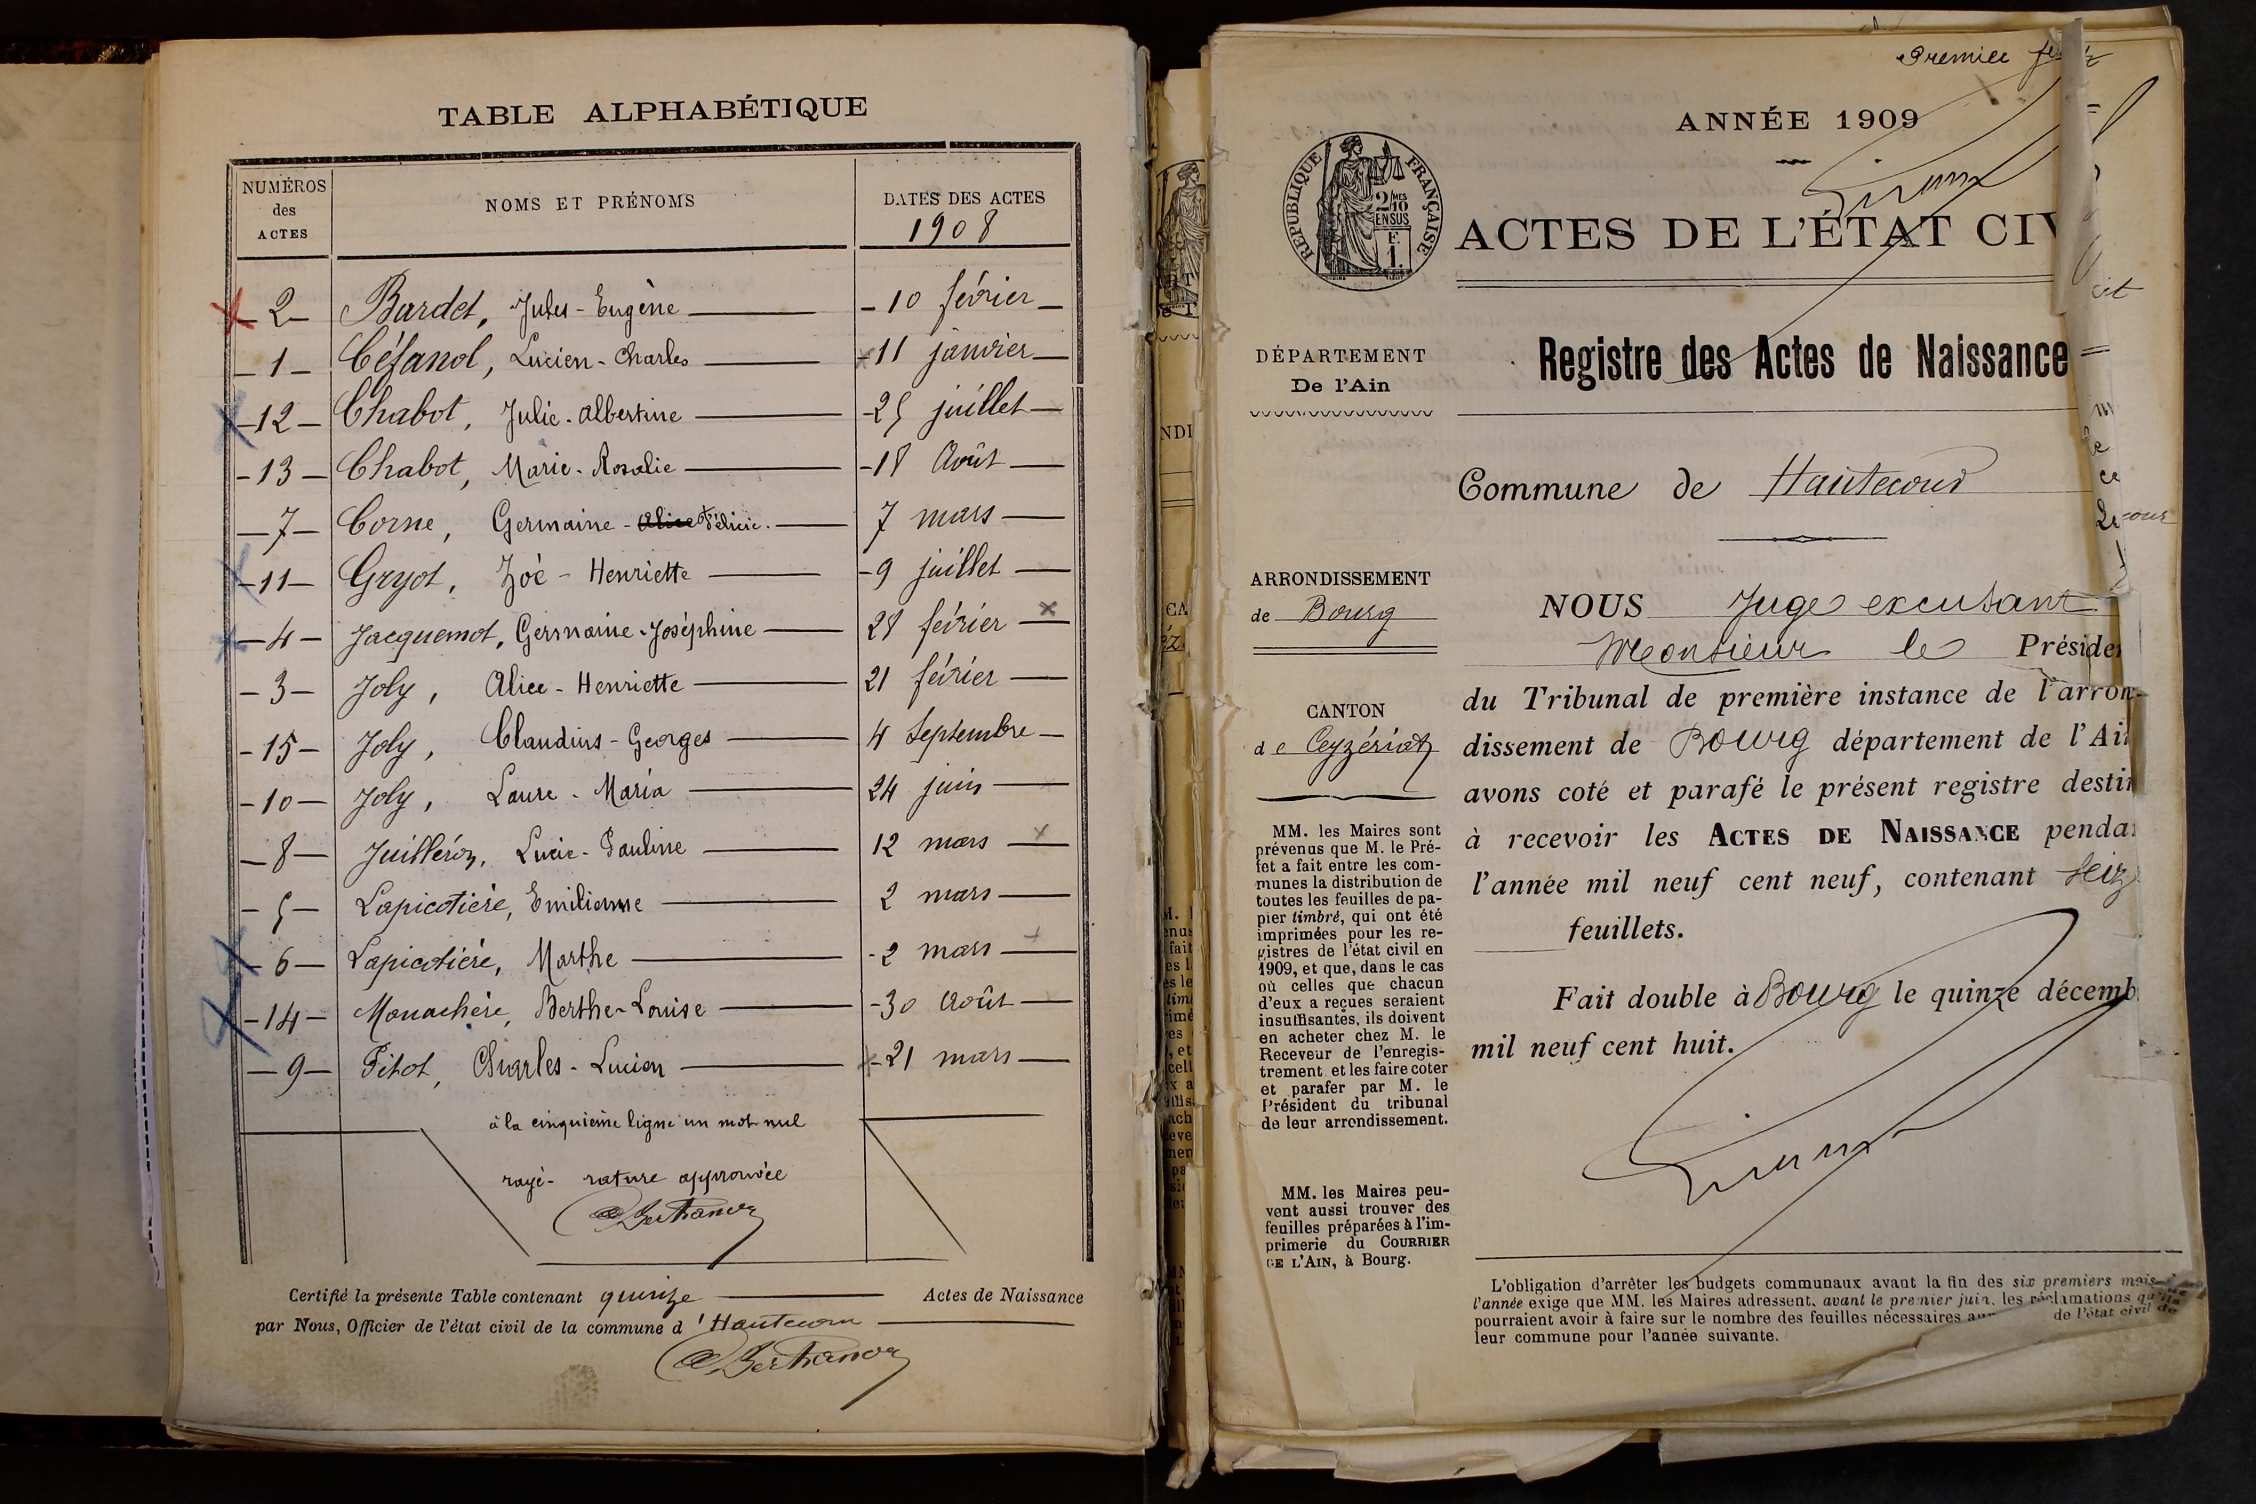 TABLE ALPHABÉTIQUE
NUMÉROS des ACTES
NOMS ET PRÉNOMS
DATES DES ACTES
1908
- 2 - Bardet, Jules - Eugène - 10 février
- 1 - Céfanol, Lucien - Charles 11 janvier
- 12 - Chabot, Julie - Albertine - 25 juillet
- 13 - Chabot, Marie - Rosalie - 18 Août
- 7 - Corne, Germaine - Alice Félicie. 7 mars
- 11 - Gryot, Zoé - Henriette - 9 juillet
- 4 - Jacquemot, Germaine - Joséphine 28 février
- 3 - Joly, Alice - Henriette 21 février
- 15 - Joly, Claudius - Georges 4 Septembre
- 10 - Joly, Laure - Maria 24 juin
- 8 - Juilléron, Lucie - Pauline 12 mars
- 5 - Lapicotière, Emilienne 2 mars
- 6 - Lapicotière, Marthe - 2 mars
- 14 - Monachère, Berthe - Louise - 30 Août
- 9 - Pitot, Charles - Lucien - 21 mars
à la cinquième ligne un mot nul
rayé - rature approuvée
Certifié la présente Table contenant quinze Actes de Naissance
par Nous, Officier de l'état civil de la commune d'Hautecour
Premier
ANNÉE 1909
RÉPUBLIQUE FRANÇAISE
2/10 MES
EN SUS
F.
1.
ACTES DE L'ÉTAT CIV
DÉPARTEMENT
De l'Ain
Registre des Actes de Naissance
Commune de Hautecour
ARRONDISSEMENT
de Bourg
CANTON
de Ceyzériat
NOUS Juge excusant
Monsieur le Présiden
du Tribunal de première instance de l'arron-
dissement de Bourg département de l'Ain
avons coté et parafé le présent registre destin
à recevoir les ACTES DE NAISSANCE pendan
l'année mil neuf cent neuf, contenant seize
feuillets.
Fait double à Bourg le quinze décemb
mil neuf cent huit.
MM. les Maires sont
prévenus que M. le Pré-
fet a fait entre les com-
munes la distribution de
toutes les feuilles de pa-
pier timbré, qui ont été
imprimées pour les re-
gistres de l'état civil en
1909, et que, dans le cas
où celles que chacun
d'eux a reçues seraient
insuffisantes, ils doivent
en acheter chez M. le
Receveur de l'enregis-
trement et les faire coter
et parafer par M. le
Président du tribunal
de leur arrondissement.
MM. les Maires peu-
vent aussi trouver des
feuilles préparées à l'im-
primerie du COURRIER
DE L'AIN, à Bourg.
L'obligation d'arrêter les budgets communaux avant la fin des six premiers mois
l'année exige que MM. les Maires adressent, avant le premier juin, les réclamations qu'ils
pourraient avoir à faire sur le nombre des feuilles nécessaires de l'état civil de
leur commune pour l'année suivante.